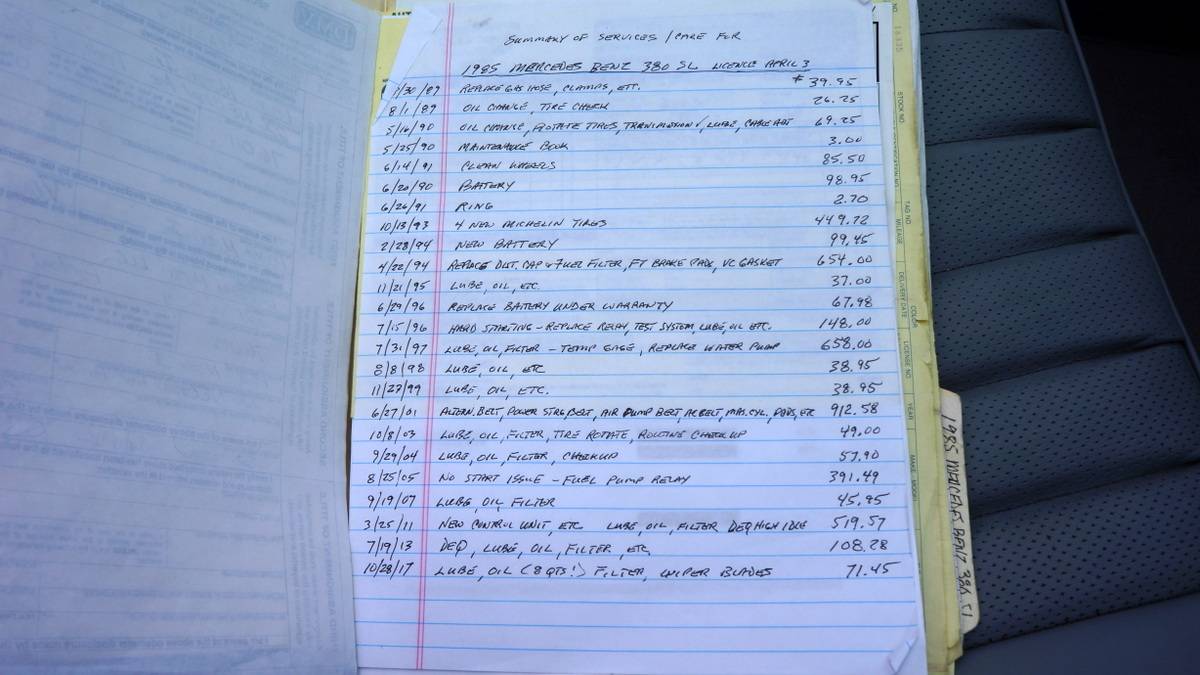 SUMMARY OF SERVICES / CARE FOR
1985 MERCEDES BENZ 380 SL LICENCE APRIL 3
/30/89 REPLACE GAS HOSE, CLAMPS, ETC. $39.95
8/1/89 OIL CHANGE, TIRE CHECK 26.25
5/16/90 OIL CHANGE, ROTATE TIRES, TRANSMISSION, LUBE, CABLE ADJ 69.25
5/25/90 MAINTENANCE BOOK 3.00
6/14/91 CLEAN WHEELS 85.50
6/20/90 BATTERY 98.95
6/26/91 RING 2.70
10/13/93 4 NEW MICHELIN TIRES 449.72
2/28/94 NEW BATTERY 99.45
4/22/94 REPLACE DIST. CAP & FUEL FILTER, FT BRAKE PADS, VC GASKET 654.00
11/21/95 LUBE, OIL, ETC 37.00
6/29/96 REPLACE BATTERY UNDER WARRANTY 67.98
7/15/96 HARD STARTING - REPLACE RELAY, TEST SYSTEM, LUBE, OIL ETC. 148.00
7/31/97 LUBE, OIL, FILTER - TEMP GAGE, REPLACE WATER PUMP 658.00
8/8/98 LUBE, OIL, ETC 38.95
11/27/99 LUBE, OIL, ETC. 38.95
6/27/01 ALTERN. BELT, POWER STRG BELT, AIR PUMP BELT, AC BELT, MAS. CYL., PADS, ETC 912.58
10/8/03 LUBE, OIL, FILTER, TIRE ROTATE, ROUTINE CHECKUP 49.00
9/29/04 LUBE, OIL, FILTER, CHECKUP 57.90
8/25/05 NO START ISSUE - FUEL PUMP RELAY 391.49
9/19/07 LUBE, OIL FILTER 45.95
3/25/11 NEW CONTROL UNIT, ETC LUBE, OIL, FILTER DEQ HIGH IDLE 519.57
7/19/13 DEQ, LUBE, OIL, FILTER, ETC 108.28
10/28/17 LUBE, OIL (8 QTS!) FILTER, WIPER BLADES 71.45
STOCK NO
TAG NO
MILEAGE
DELIVERY DATE
COLOR
LICENSE NO
YEAR
MAKE - MODEL
1985 MERCEDES BENZ 380 SL